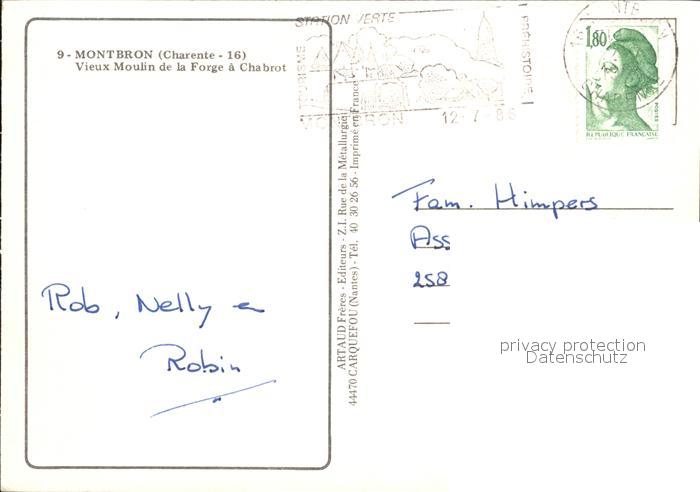 STATION VERTE
TOURISME
PRÉHISTOIRE
MONTBRON 12-7-86
1,80
POSTES
REPUBLIQUE FRANÇAISE
9 - MONTBRON (Charente - 16)
Vieux Moulin de la Forge à Chabrot
ARTAUD Frères - Editeurs - Z.I. Rue de la Métallurgie
44470 CARQUEFOU (Nantes) - Tél. 40 30 26 56 - Imprimé en France
Fam. Himpers
Ass
258
Rob, Nelly en
Robin
privacy protection
Datenschutz